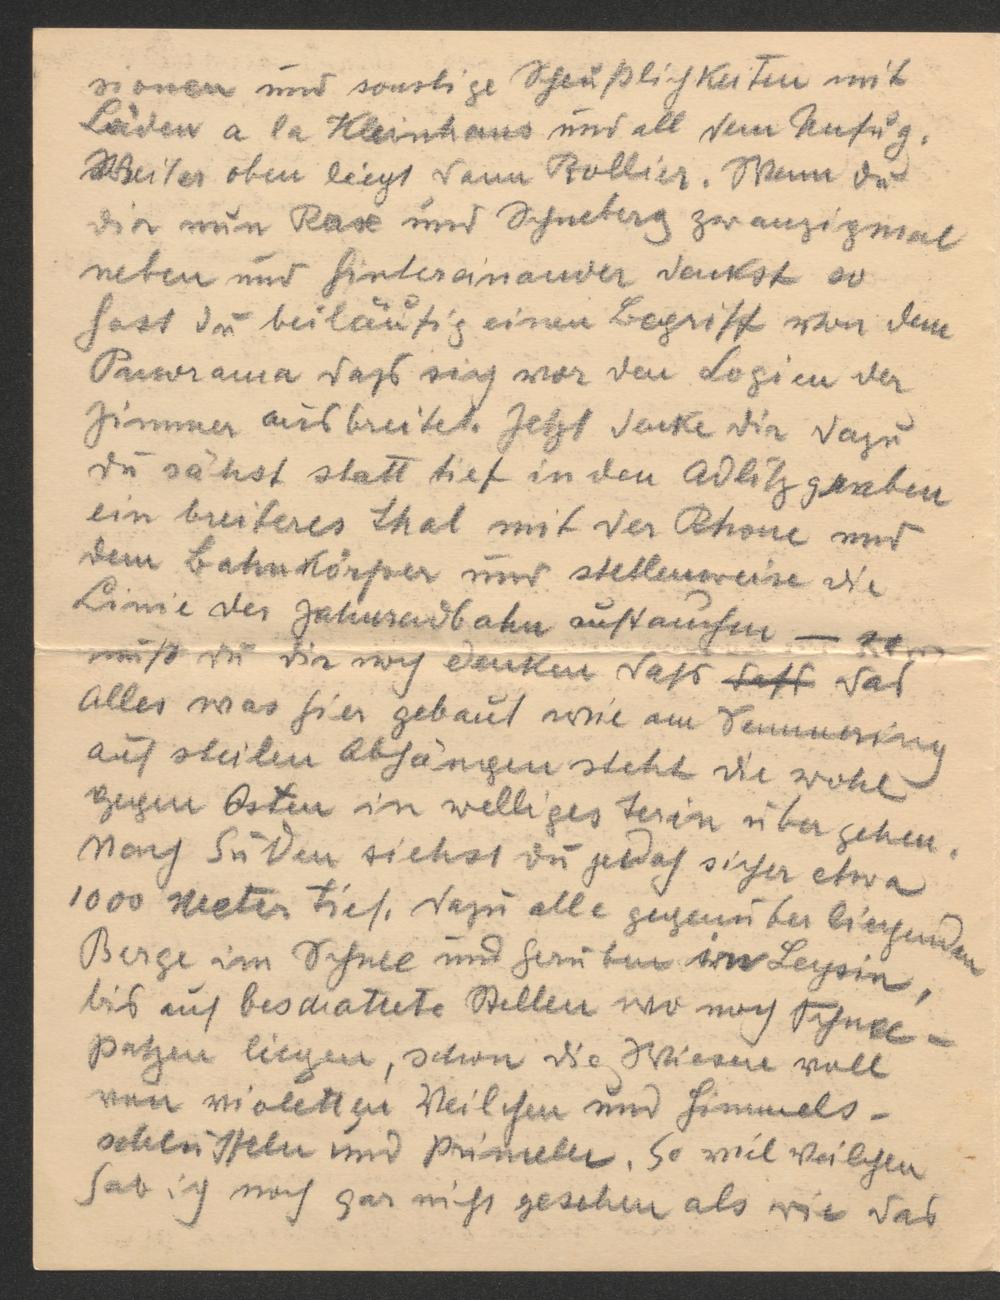 sionen und sonstige Scheußlichkeiten mit
Läden a la Kleinhaus und all dem Unfug.
Weiter oben liegt dann Rollier. Wenn du
dir nun Rax und Schneberg zwanzigmal
neben und hintereinander denkst so
hast du beiläufig einen Begriff von dem
Panorama dass sich vor den Logien der
Zimmer ausbreitet. Jetzt denke dir dazu
du sähst statt tief in den Adlitzgraben
ein breiteres Thal mit der Rhone und
dem Bahnkörper und stellenweise die
Linie der Zahnradbahn auftauchen —
mußt du dir noch denken dass das
Alles was hier gebaut wie am Semmering
auf steilen Abhängen steht die wohl
gegen Osten in welliges terin übergehen.
Nach Süden siehst du jedoch sicher etwa
1000 Meeter tief. dazu alle gegenüber liegenden
Berge im Schnee und herüben in Leysin,
bis auf beschattete Stellen wo noch Schnee-
patzen liegen, schon die Wiesen voll
von violetten Veilchen und Himmels-
schlüsseln und Primeln. So viel Veilchen
hab ich noch gar nicht gesehen als wie das